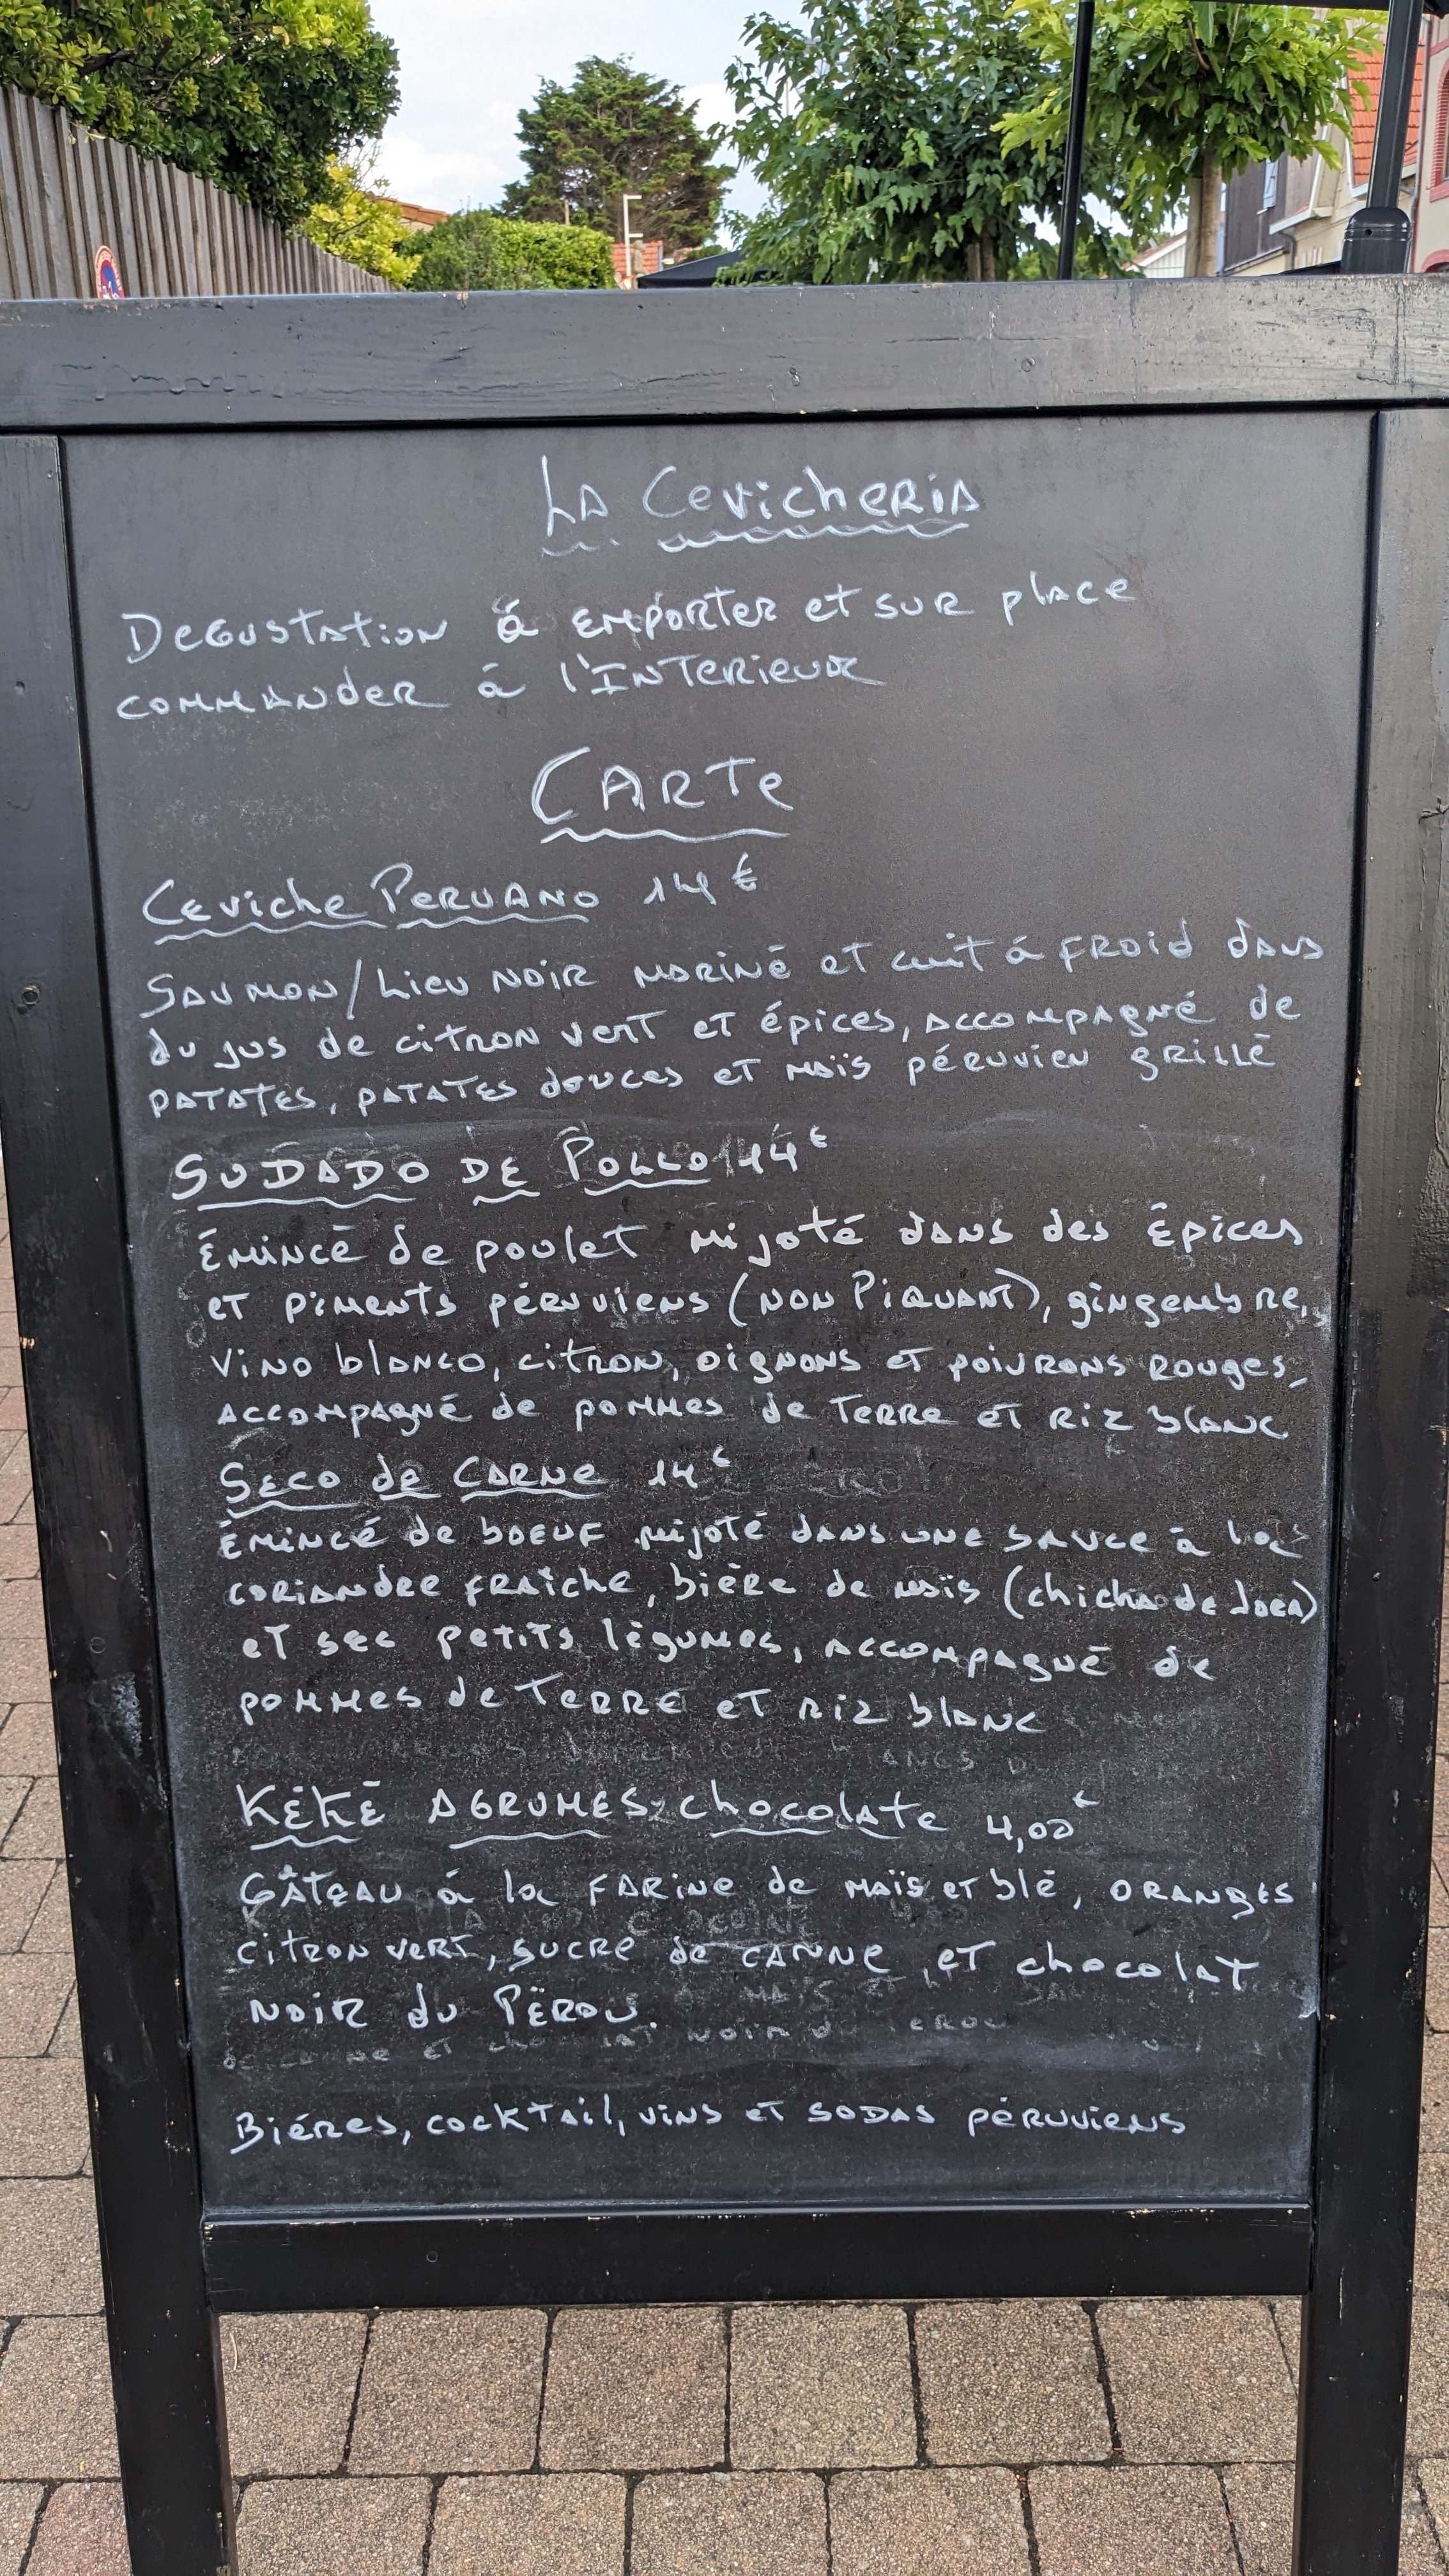 La Cevicheria
Degustation à emporter et sur place
commander à l'Interieur
Carte
Ceviche Peruano 14€
Saumon/Lieu noir mariné et cuit à froid dans
du jus de citron vert et épices, accompagné de
patates, patates douces et maïs péruvien grillé
Sudado de Pollo 14€
Émincé de poulet mijoté dans des épices
et piments péruviens (non Piquant), gingembre,
vino blanco, citron, oignons et poivrons rouges,
accompagné de pommes de terre et riz blanc
Seco de carne 14€
Émincé de boeuf mijoté dans une sauce à la
coriandre fraîche, bière de maïs (chicha de Jora)
et ses petits légumes, accompagné de
pommes de terre et riz blanc
Kéké Agrumes-chocolate 4,00€
Gâteau à la farine de maïs et blé, oranges
citron vert, sucre de canne et chocolat
noir du Pérou
Biéres, cocktail, vins et sodas péruviens